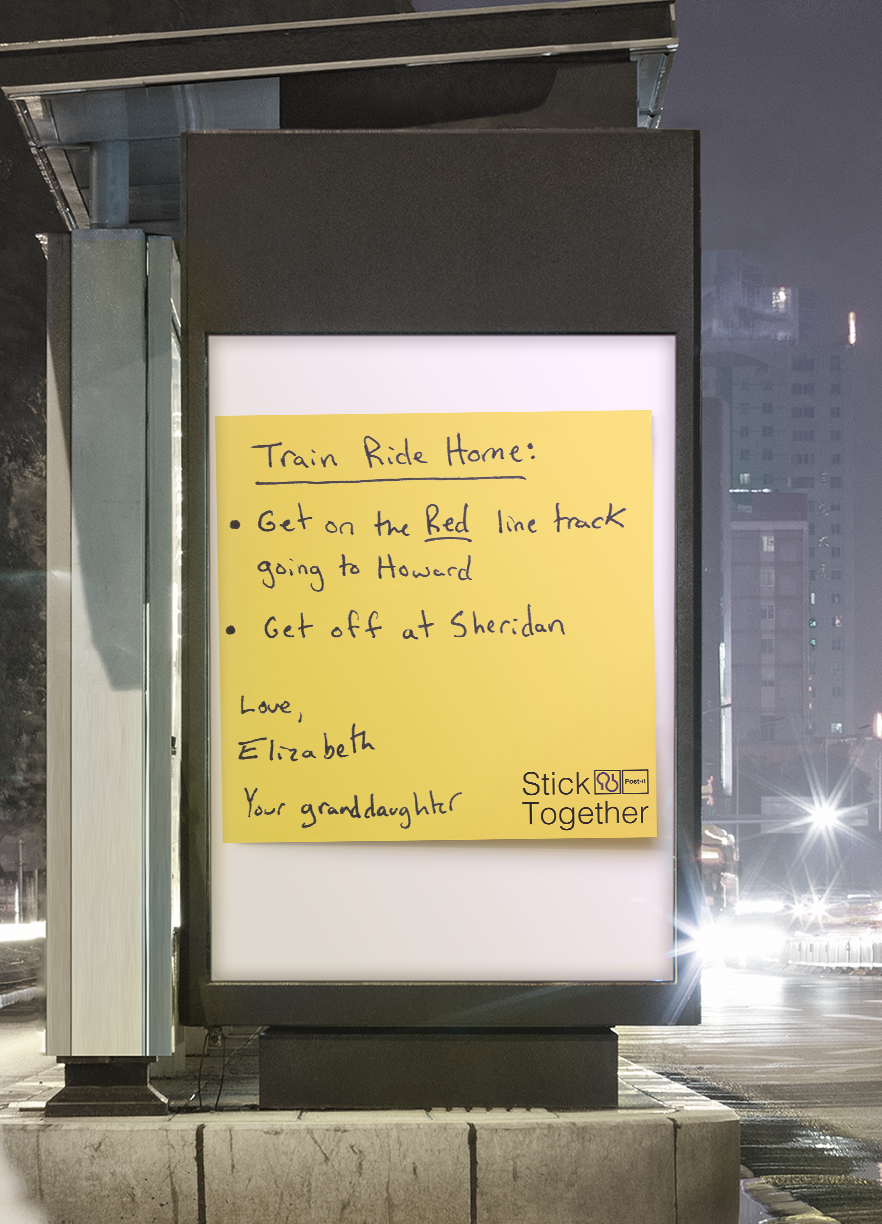 Train Ride Home:
• Get on the Red line track
going to Howard
• Get off at Sheridan
Love,
Elizabeth
Your granddaughter
Stick Post-it
Together